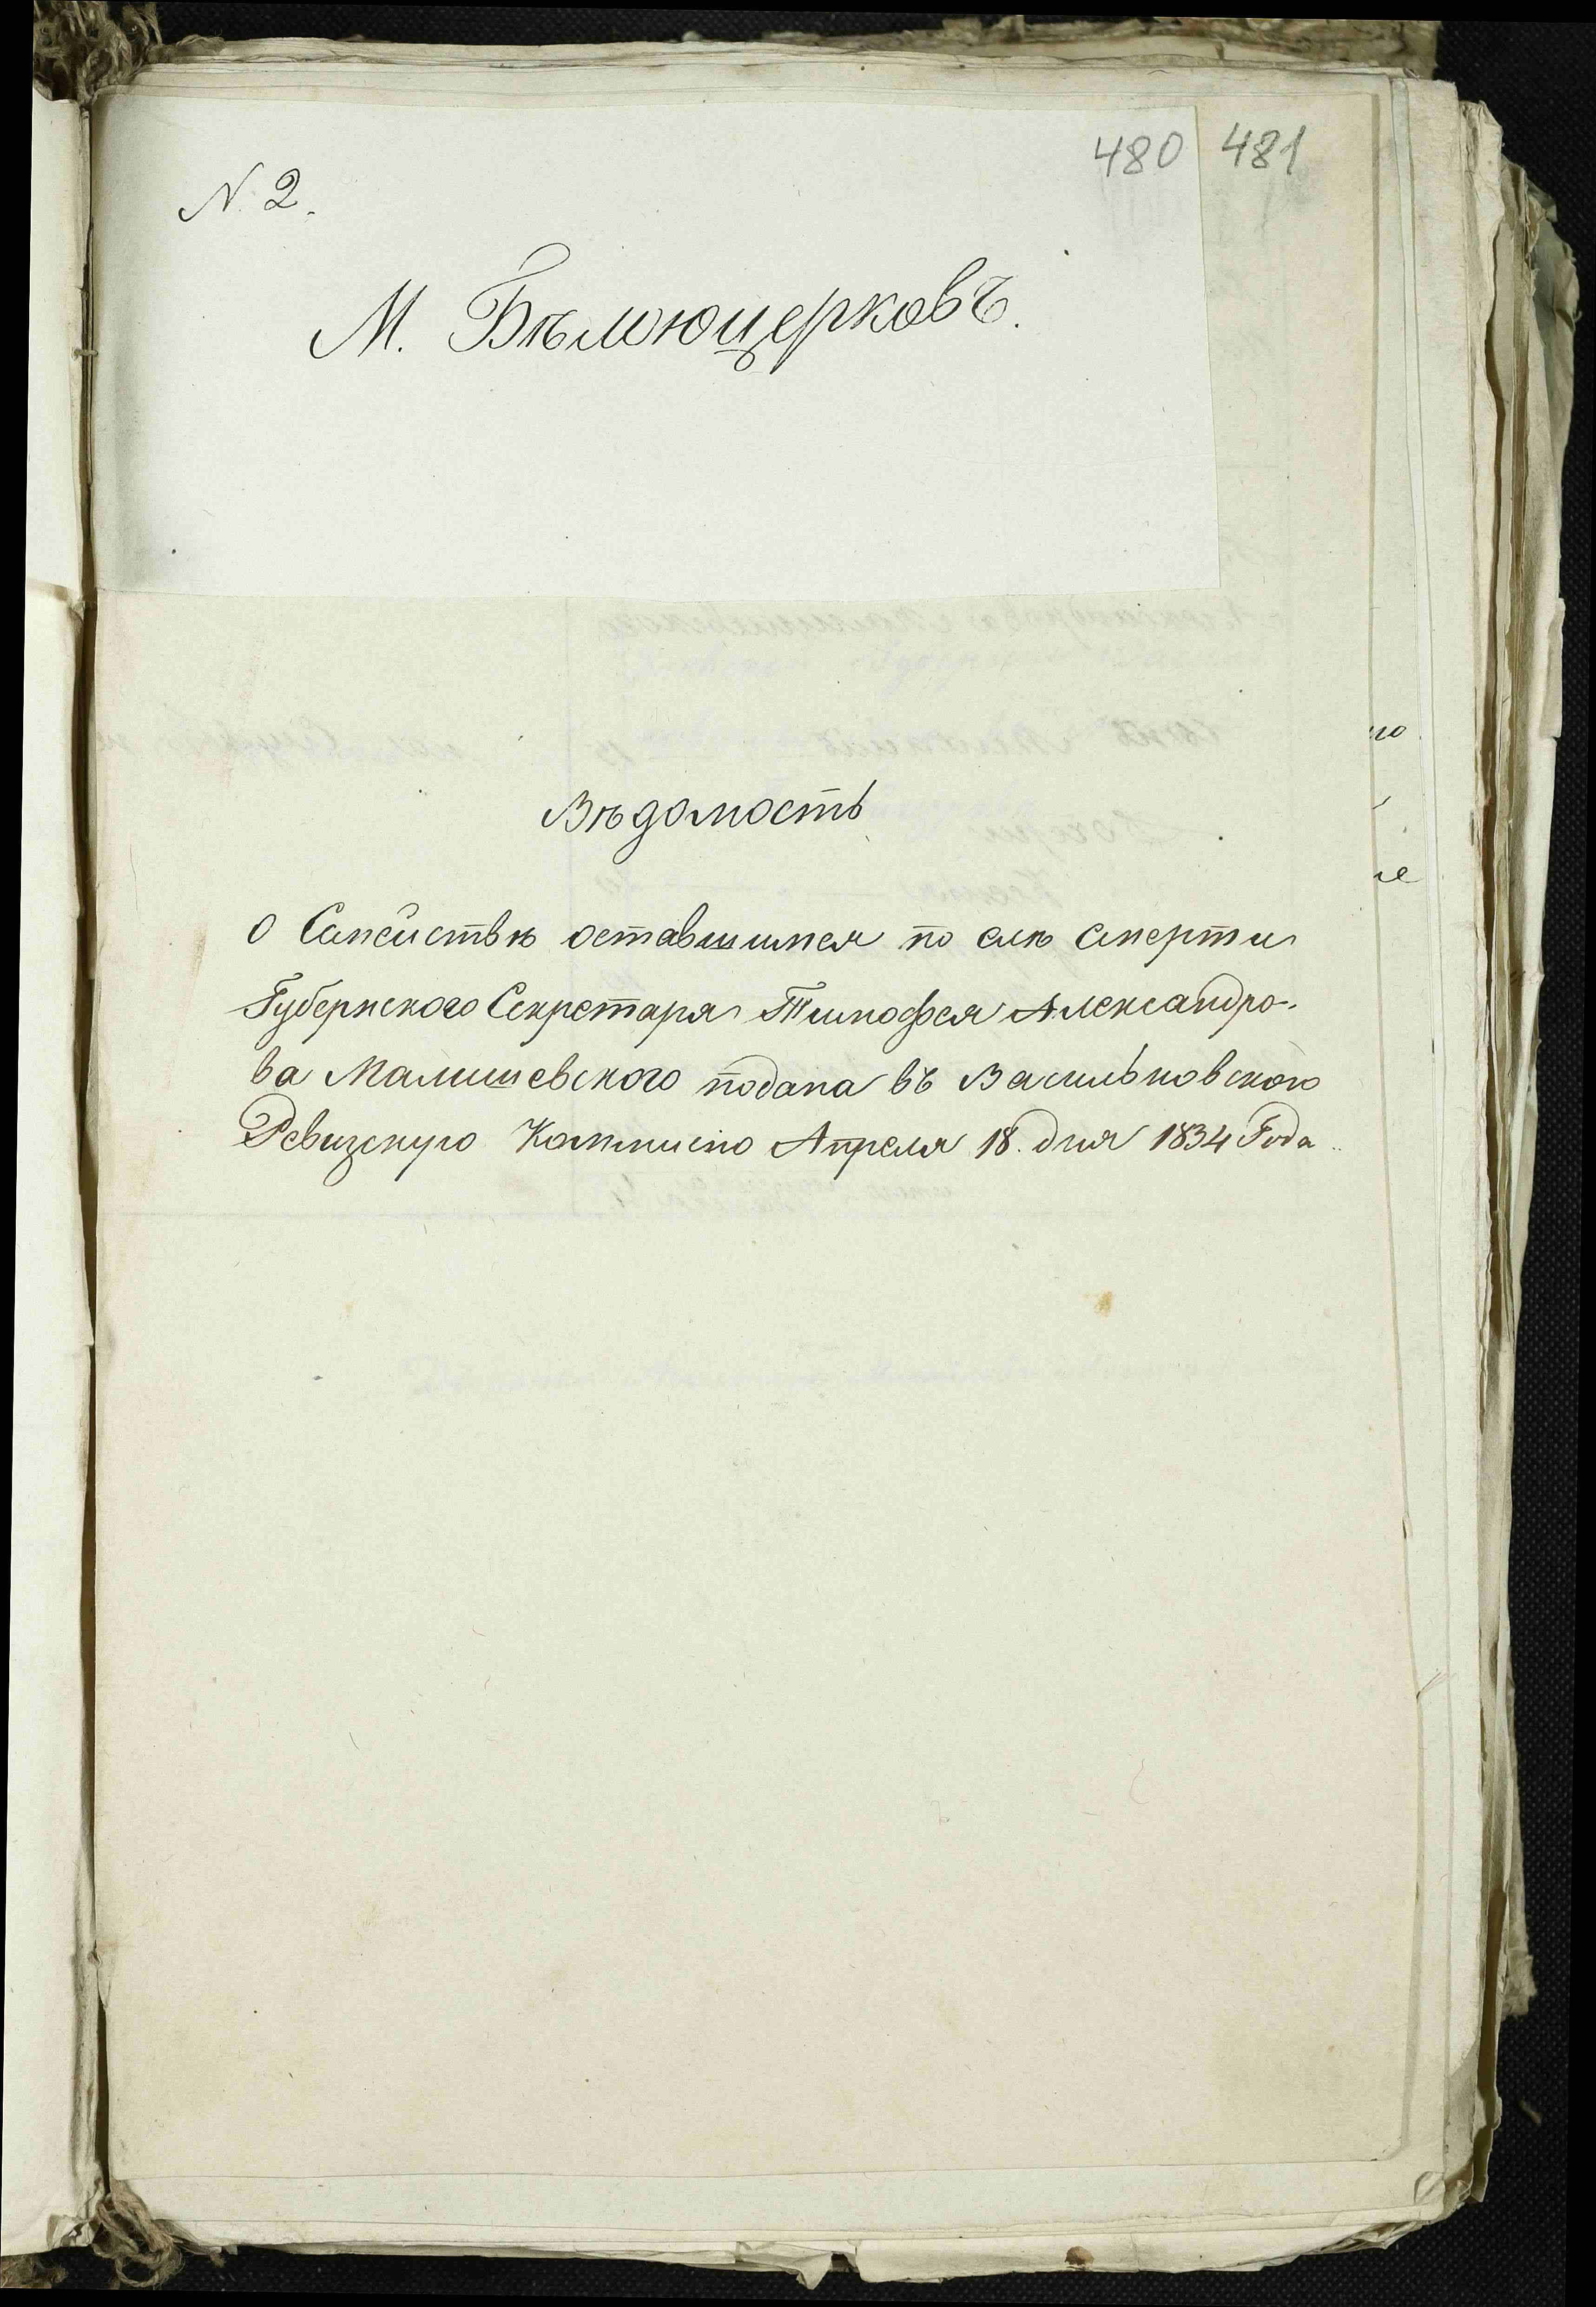 480 481
N. 2.
М. Бѣлоюцерковъ.
Вѣдомость
о Семействѣ оставшимся по смерти
Губернского Секретаря Тимофея Александро-
ва Малишевского подана въ Васильковскою
Ревизскую Коммисию Апреля 18. дня 1834 Года